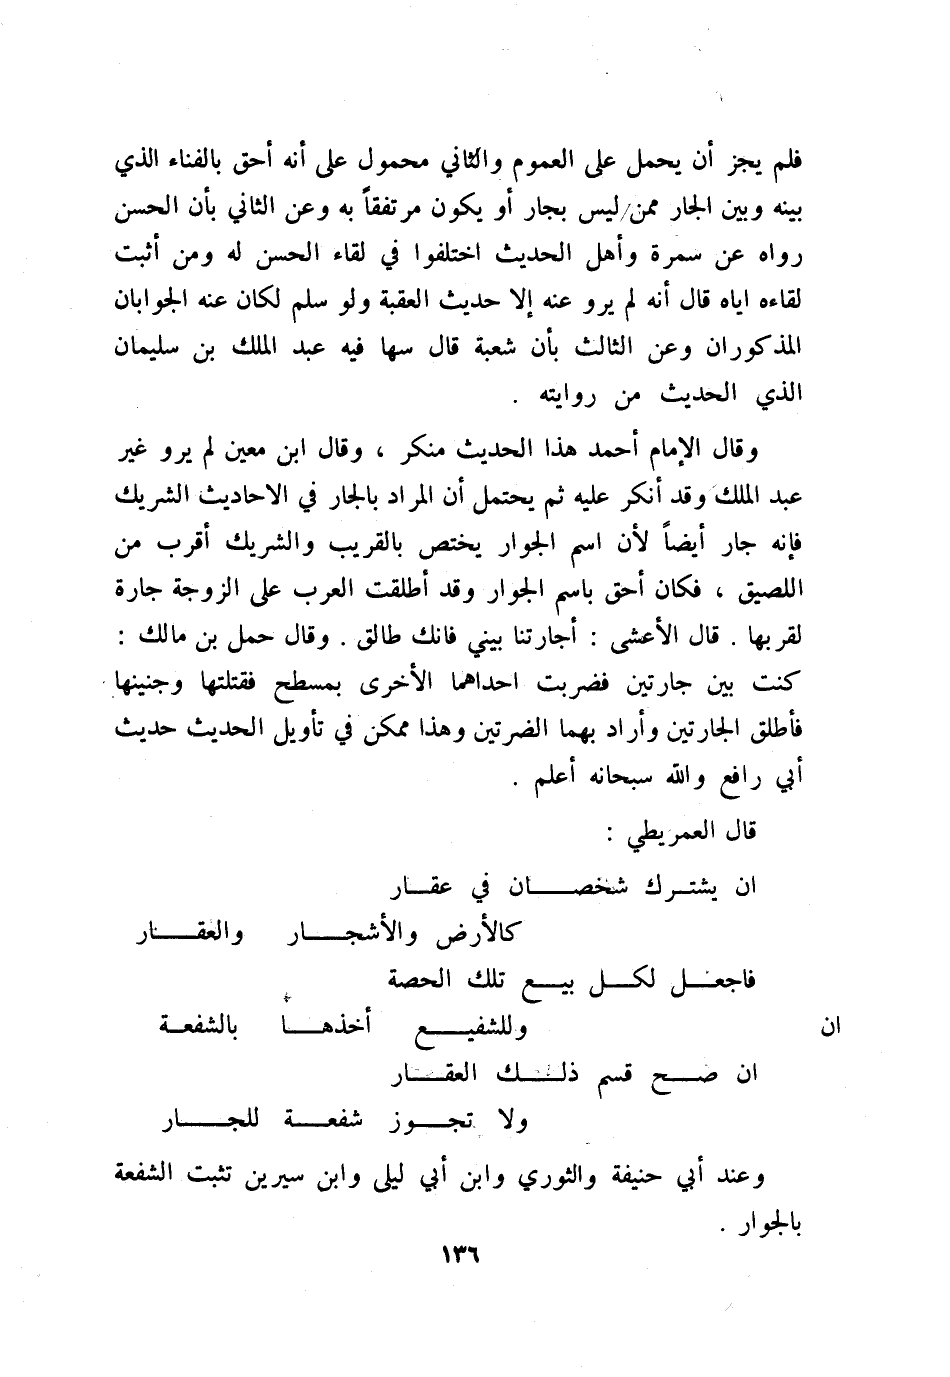 فلم يجز أن يحمل على العموم والثاني محمول على أنه أحق بالفناء الذي
بينه وبين الجار ممن/ليس بجار أو يكون مرتفقاً به وعن الثاني بأن الحسن
رواه عن سمرة وأهل الحديث اختلفوا في لقاء الحسن له ومن أثبت
لقاءه اياه قال أنه لم يرو عنه إلا حديث العقبة ولو سلم لكان عنه الجوابان
المذكوران وعن الثالث بأن شعبة قال سها فيه عبد الملك بن سليمان
الذي الحديث من روايته .
وقال الإمام أحمد هذا الحديث منكر ، وقال ابن معين لم يرو غير
عبد الملك وقد أنكر عليه ثم يحتمل أن المراد بالجار في الاحاديث الشريك
فإنه جار أيضاً لأن اسم الجوار يختص بالقريب والشريك أقرب من
اللصيق ، فكان أحق باسم الجوار وقد أطلقت العرب على الزوجة جارة
لقربها . قال الأعشى : أجارتنا بيني فانك طالق . وقال حمل بن مالك :
كنت بين جارتين فضربت احداهما الأخرى بمسطح فقتلتها وجنينها
فأطلق الجارتين وأراد بهما الضرتين وهذا ممكن في تأويل الحديث حديث
أبي رافع والله سبحانه أعلم .
قال العمريطي :
ان يشترك شخصان في عقار
كالأرض والأشجار والعقار
فاجعل لكل بيع تلك الحصة
وللشفيع أخذها بالشفعة
ان
ان صح قسم ذلك العقار
ولا تجوز شفعة للجار
وعند أبي حنيفة والثوري وابن أبي ليلى وابن سيرين تثبت الشفعة
بالجوار .
١٣٦